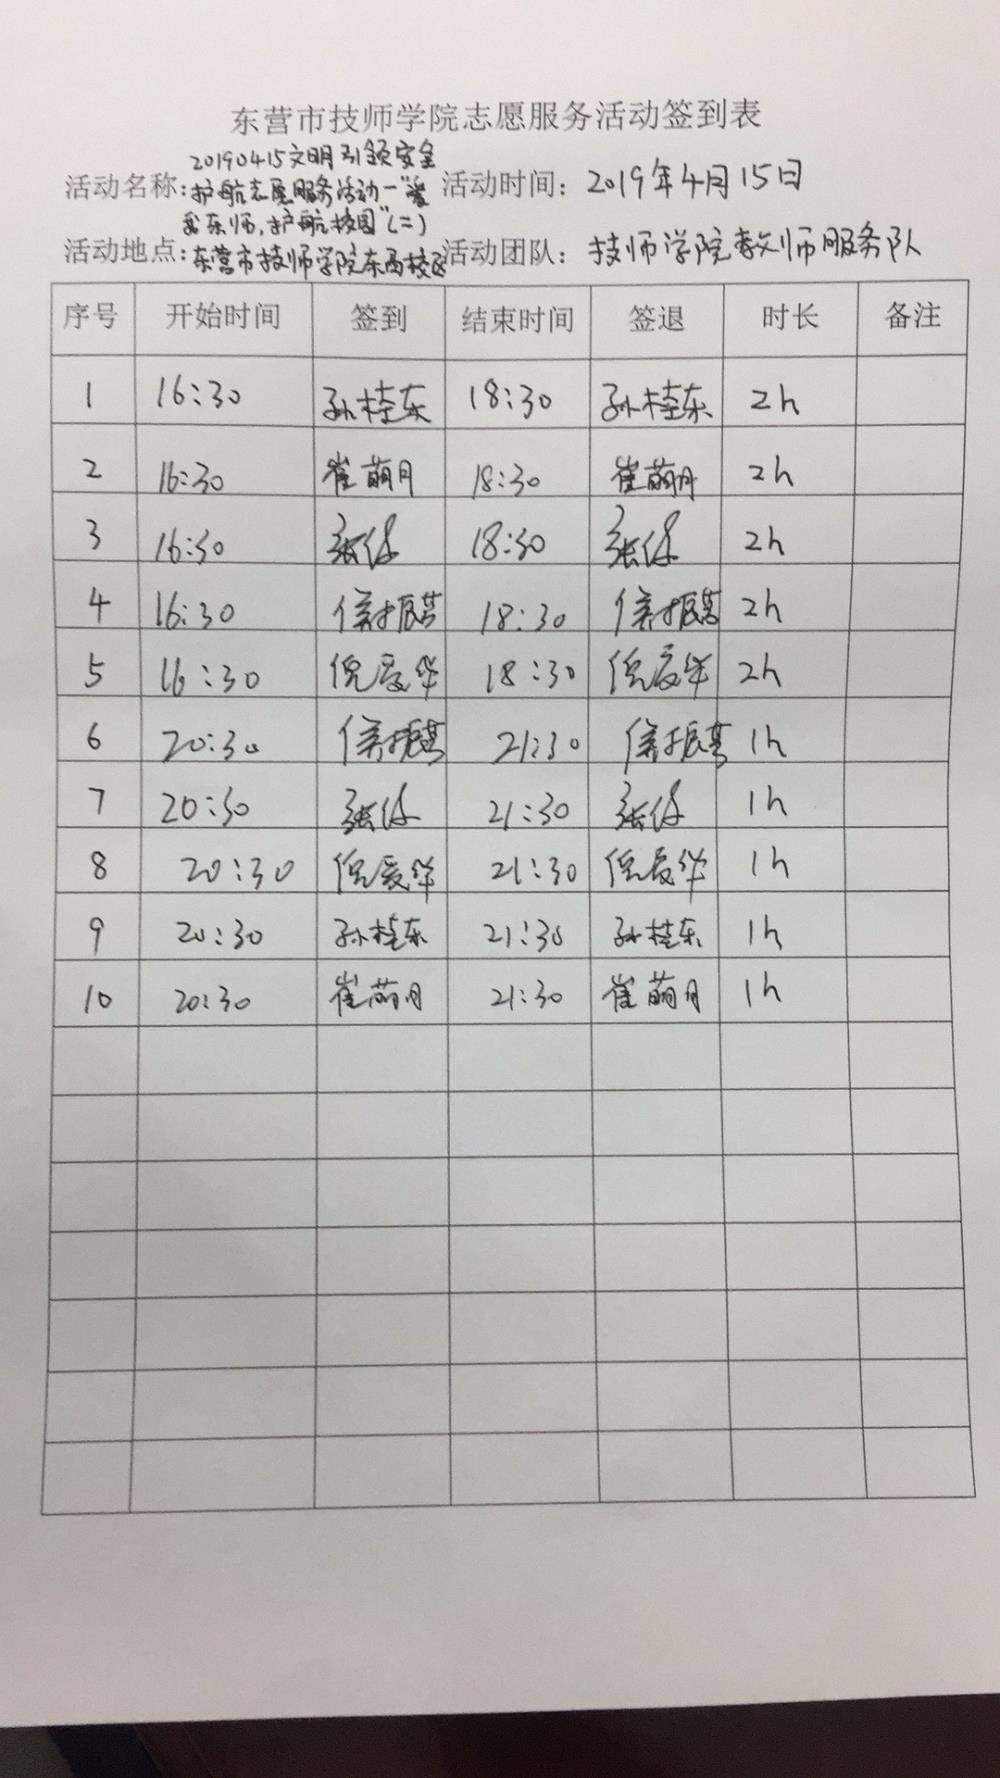 东营市技师学院志愿服务活动签到表
活动名称: 20190415文明引领安全
护航志愿服务活动—"爱
我东师,护航校园"(二)
活动时间: 2019年4月15日
活动地点: 东营市技师学院东西校区
活动团队: 技师学院教师服务队
序号 开始时间 签到 结束时间 签退 时长 备注
1 16:30 孙桂东 18:30 孙桂东 2h
2 16:30 崔萌月 18:30 崔萌月 2h
3 16:30 张 18:30 张 2h
4 16:30 侯振营 18:30 侯振营 2h
5 16:30 倪爱华 18:30 倪爱华 2h
6 20:30 侯振营 21:30 侯振营 1h
7 20:30 张 21:30 张 1h
8 20:30 倪爱华 21:30 倪爱华 1h
9 20:30 孙桂东 21:30 孙桂东 1h
10 20:30 崔萌月 21:30 崔萌月 1h